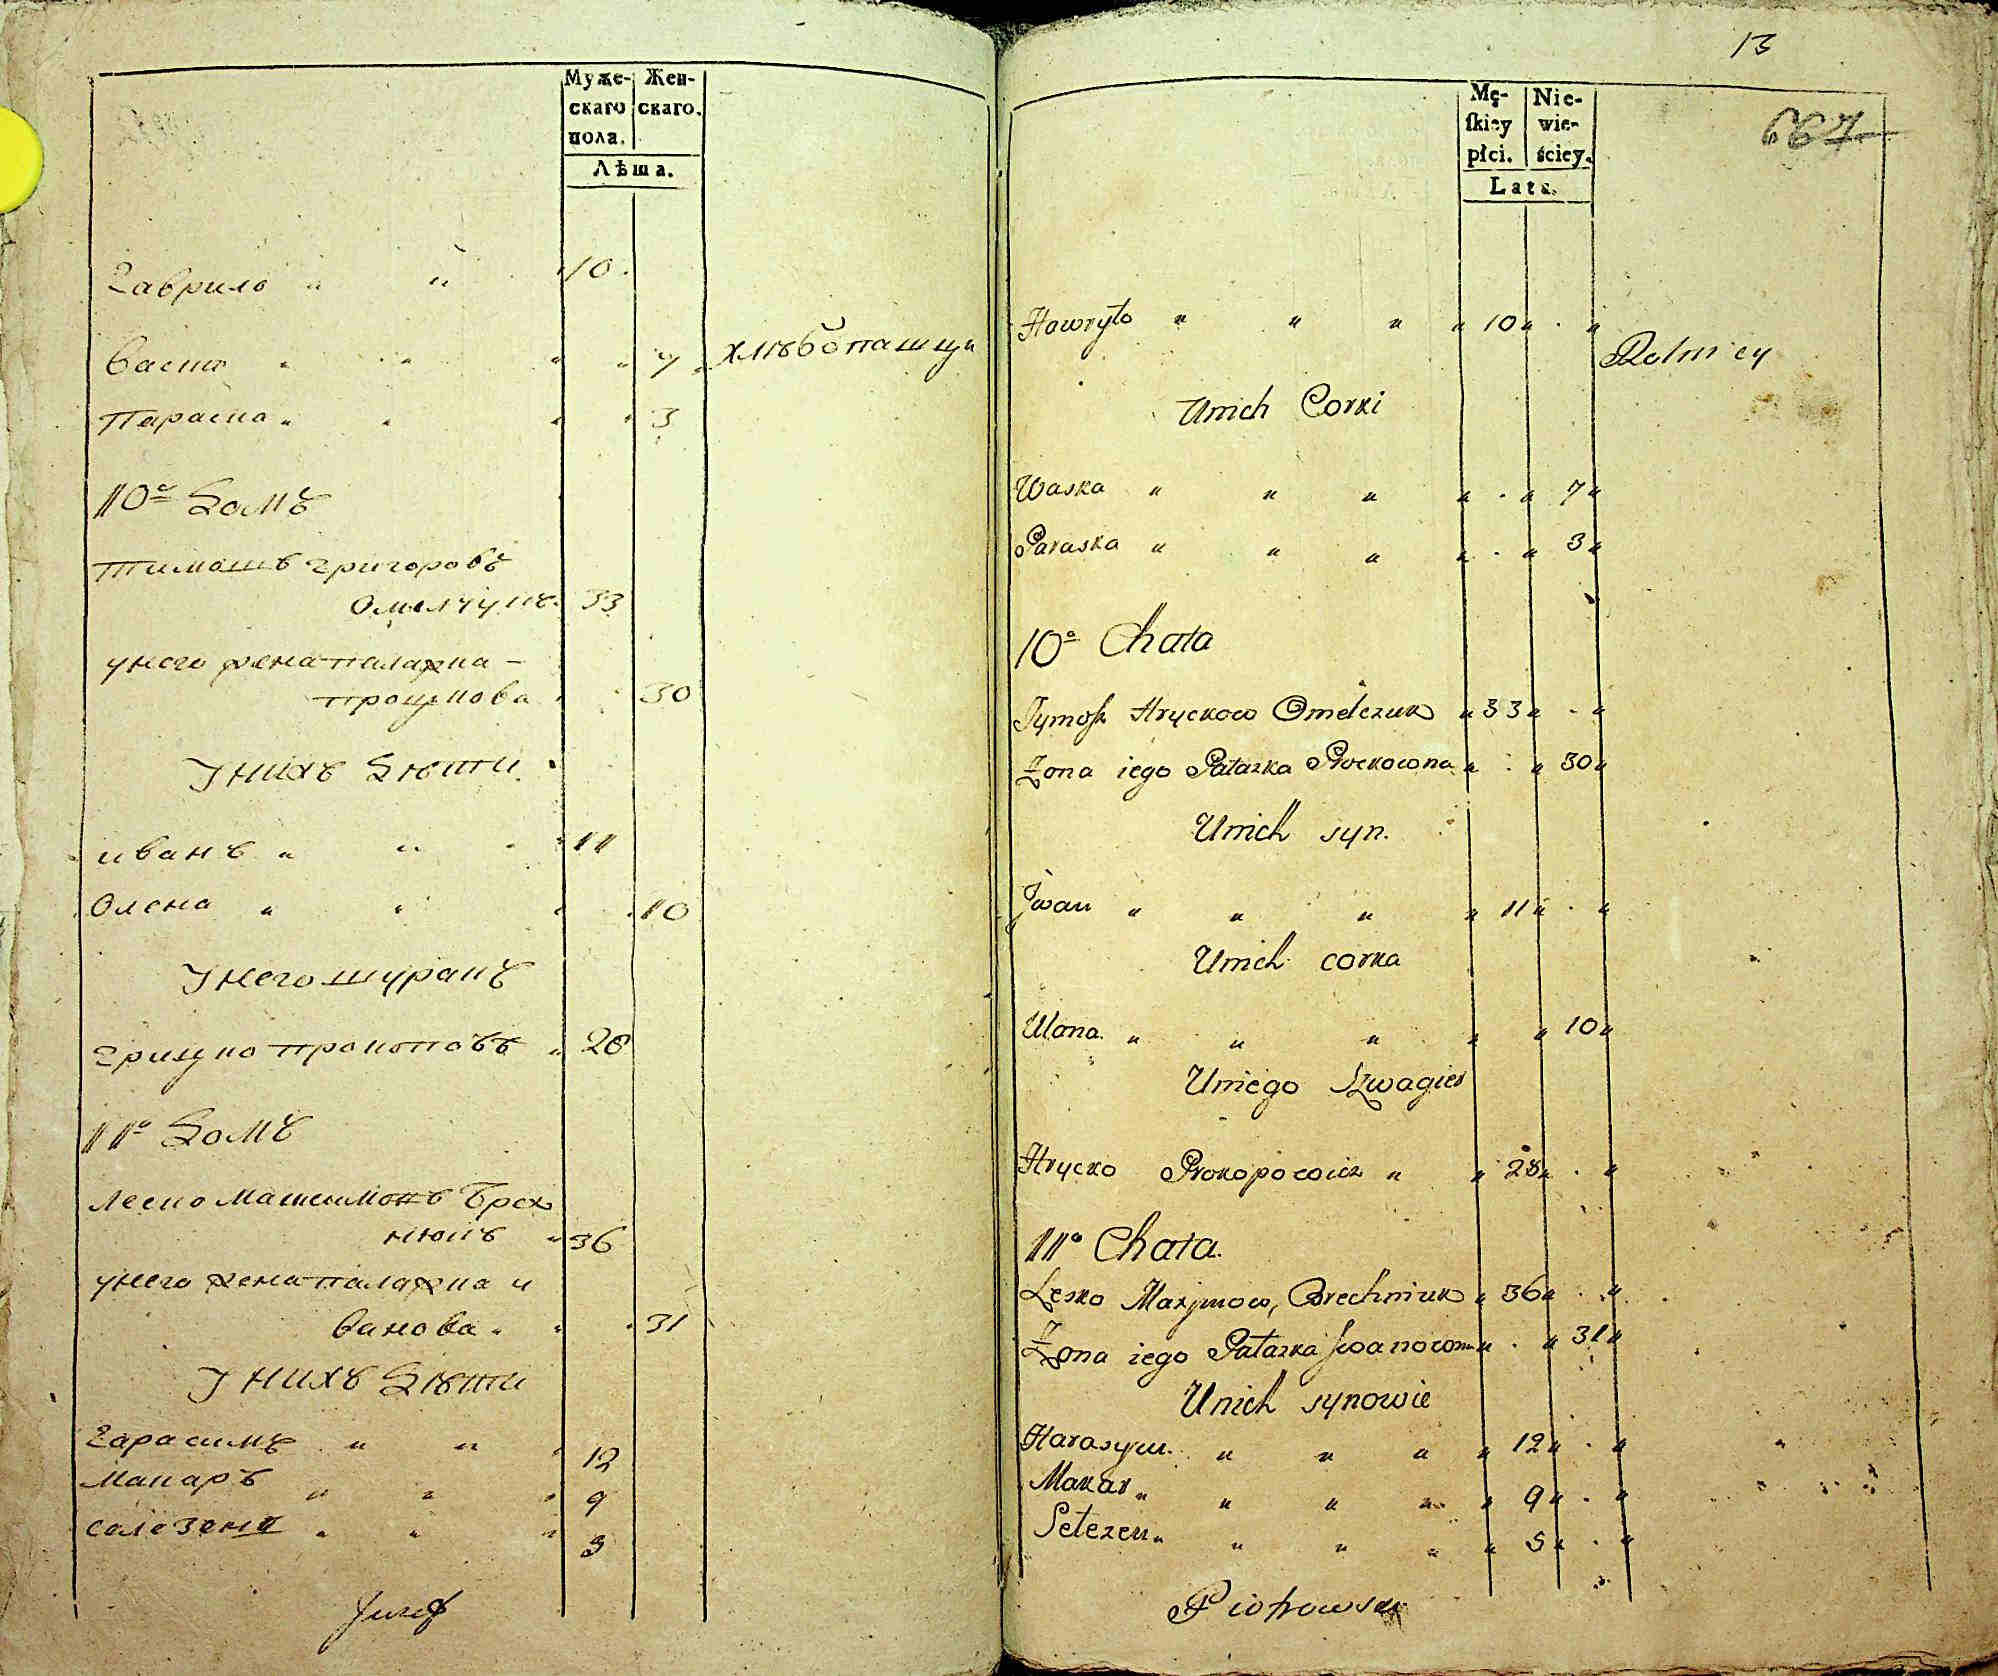 Муже-
скаго
пола.
Жен-
скаго.
Лѣта.
Гаврило " " 10
Васка " " " " 7 хлѣбопашцы
Параска " " " " 3
10й Домъ
Тимошъ Григоровъ
Омелчукъ 33
у него жена палажка –
Процкова 30
У нихъ Дѣти
иванъ " " " 11
Олена " " " 10
У него шуринъ
Грицко Прокоповъ " 28
11й Домъ
Леско Максимовъ Брех
нюкъ " 36
у него жена палажка и
ванова " " " 31
У нихъ Дѣти
Гарасимъ " " " 12
Макаръ " " " 9
Селезень " " " 5
Jozef
13
667
Mę-
ſkiey
płci.
Nie-
wie-
ściey.
Lata.
Hawryło " " " " 10 " . "
Rolnicy
Unich Corki
Waska " " " " . " 7 "
Paraska " " " " . " 3 "
10a Chata
Tymosz Hryckow Omelczuk " 33 " . "
Żona iego Pałazka Prockowna " . " 30 "
Unich syn.
Jwan " " " " 11 " . "
Unich corka
Ulona " " " " " 10 "
Uniego Szwagier
Hrycko Prokopowicz " " 28 " . "
11a Chata.
Lesko Maxymow, Brechniuk " 36 " . "
Żona iego Pałazka Jwanowna " . " 31 "
Unich synowie
Harasym " " " " 12 " . "
Makar " " " " " 9 " . "
Selezen " " " " " 5 " . "
Piotrowski